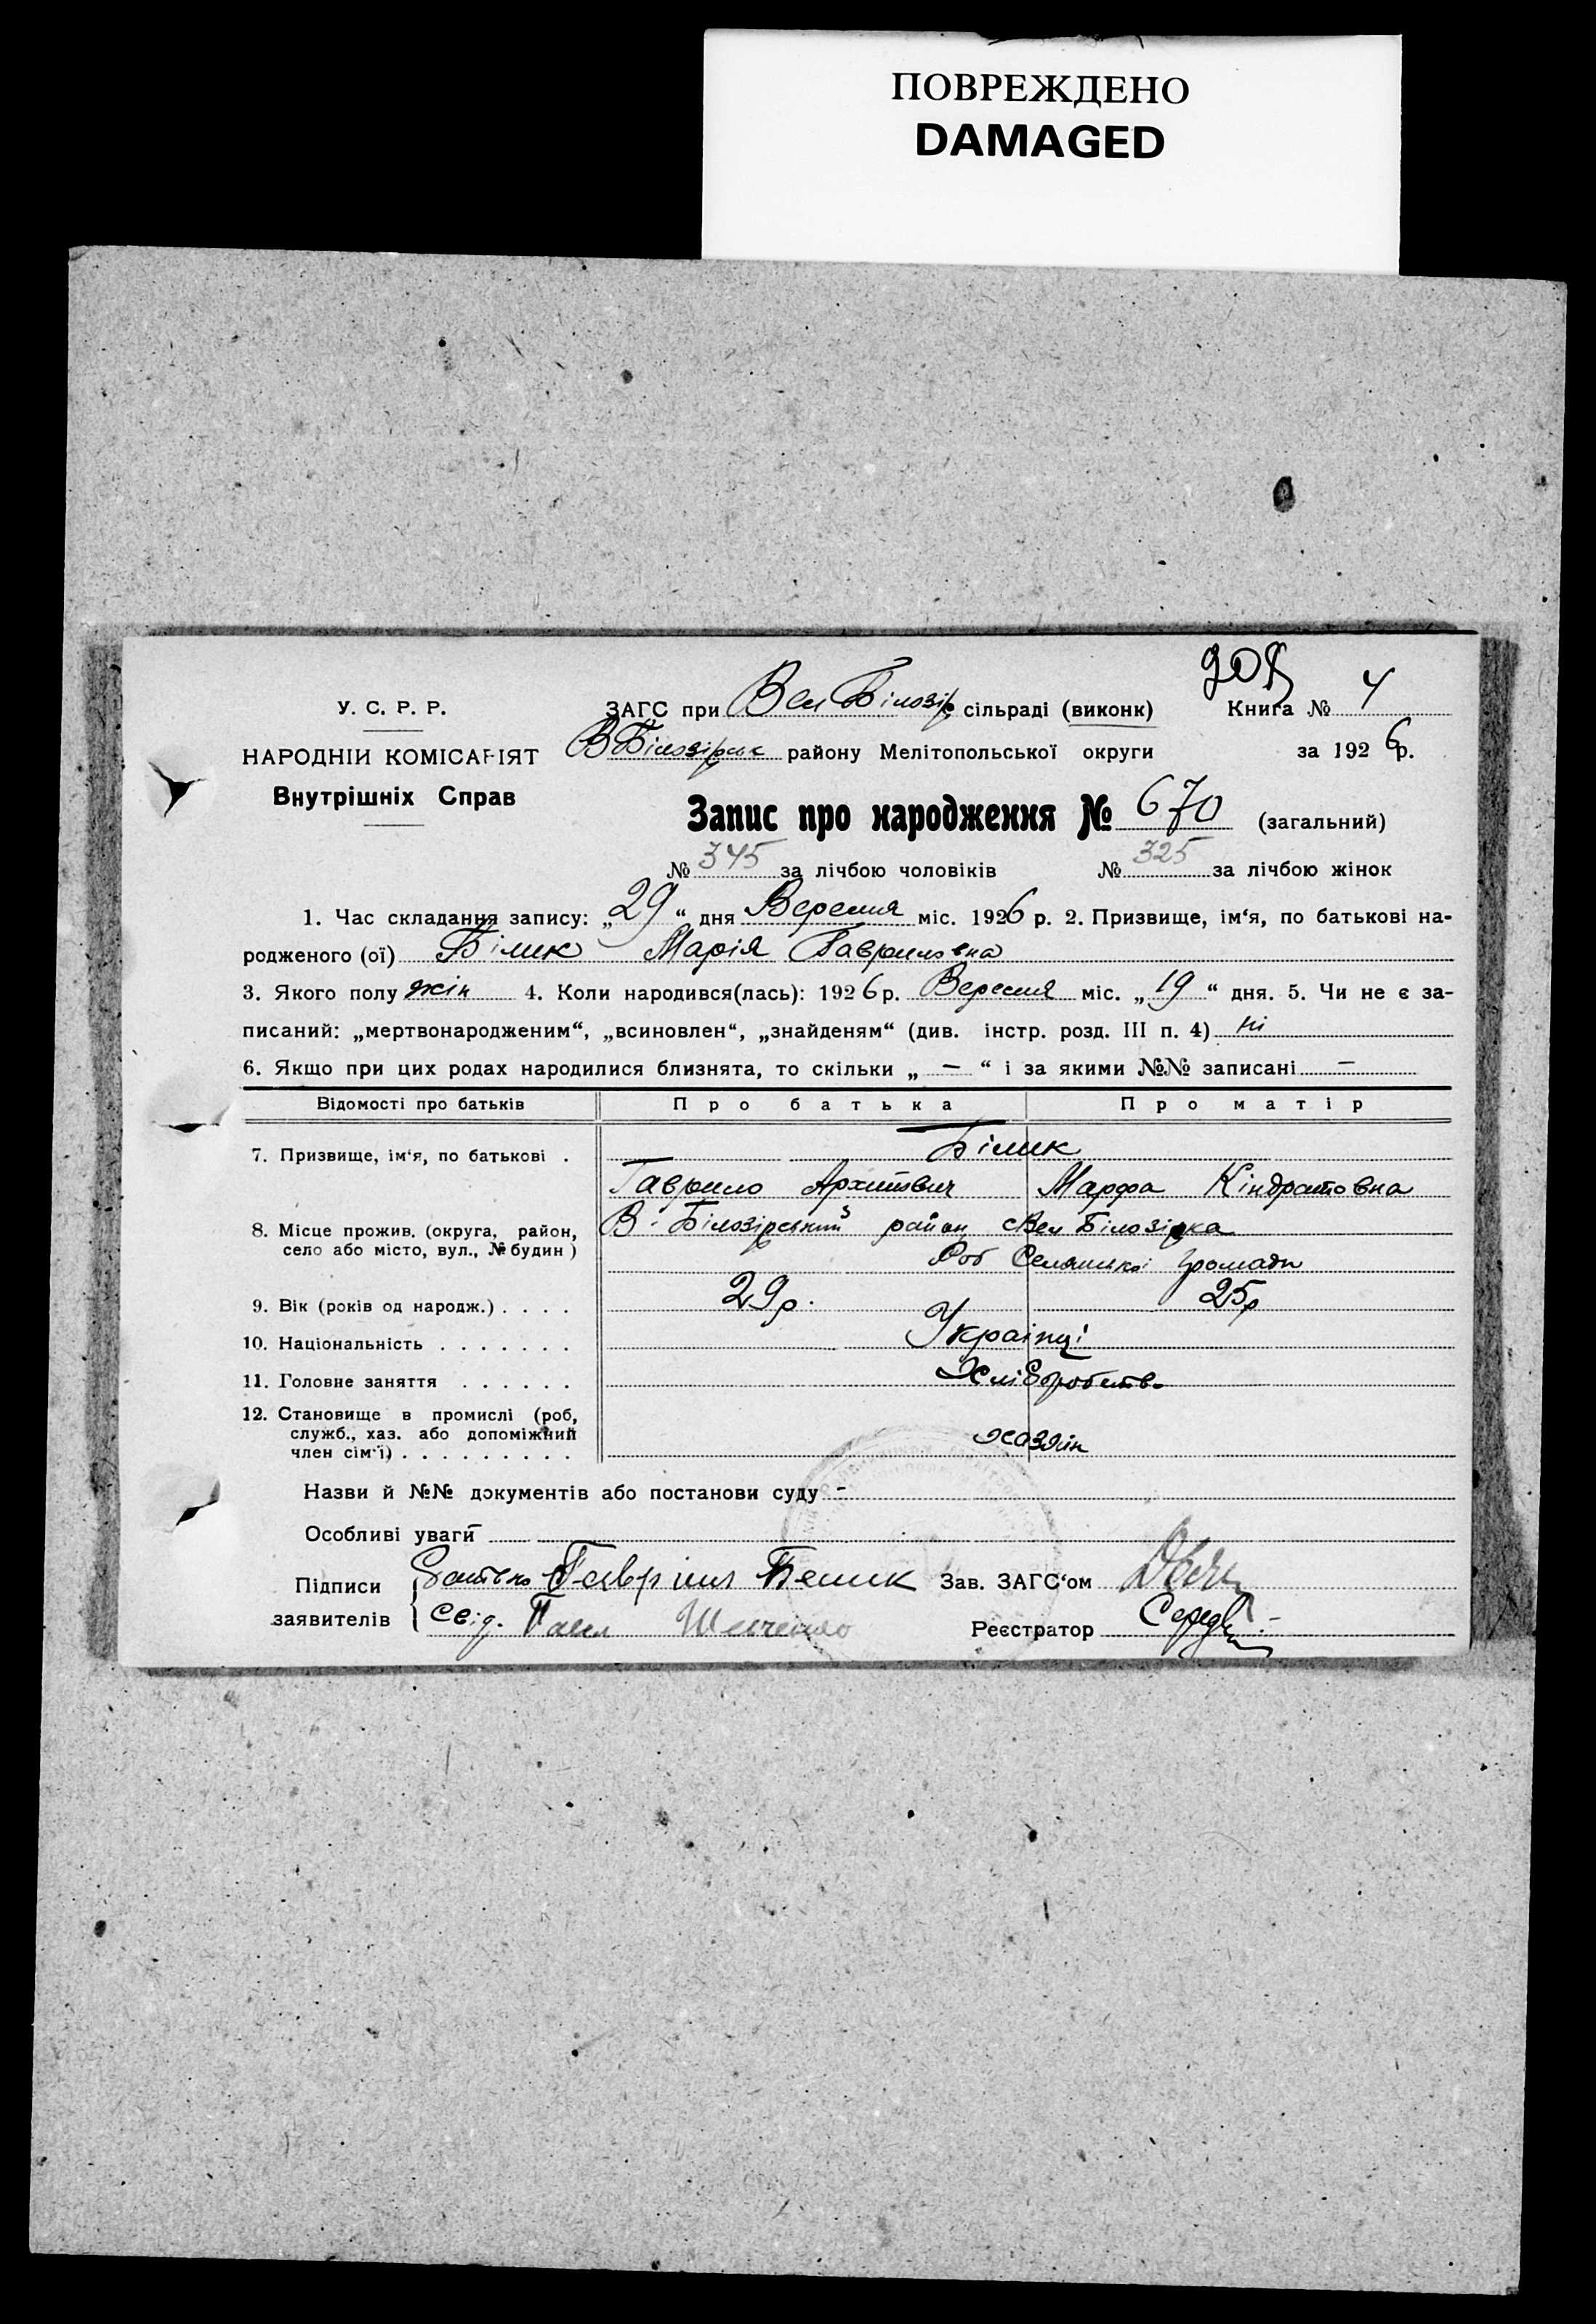 ПОВРЕЖДЕНО
DAMAGED
У. С. Р. Р.
НАРОДНІЙ КОМІСАРІЯТ
Внутрішніх Справ
ЗАГС при Вел Білозір. сільраді (виконк) Книга № 4
В Білозірськ району Мелітопольської округи за 1926 р.
Запис про народження № 670 (загальний)
№ 345 за лічбою чоловіків № 325 за лічбою жінок
1. Час складання запису: „29“ дня Вересня міс. 1926 р. 2. Призвище, ім‘я, по батькові на-
родженого (ої) Білик Марія Гавриловна
3. Якого полу жін 4. Коли народився(лась): 1926 р. Вересня міс. „19“ дня. 5. Чи не є за-
писаний: „мертвонародженим“, „всиновлен“, „знайденям“ (див. інстр. розд. III п. 4) ні
6. Якщо при цих родах народилися близнята, то скільки „ — “ і за якими №№ записані —
Відомості про батьків Про батька Про матір
7. Призвище, ім‘я, по батькові . Білик
Гаврило Архипович Марфа Кіндратовна
8. Місце прожив. (округа, район, В-Білозірський район с Вел Білозірка
село або місто, вул., № будин) Селянської громади
9. Вік (років од народж.) . . . . 29 р. 25 р
10. Національність . . . . . . . Українці
11. Головне заняття . . . . . . Хліборобство
12. Становище в промислі (роб,
служб., хаз. або допоміжний хазяїн
член сім‘ї) . . . . . . . . .
Назви й №№ документів або постанови суду -
Особливі уваги
Підписи Батько Гавріил Белик Зав. ЗАГС‘ом
заявителів Свід. Павл Шевченко Реєстратор